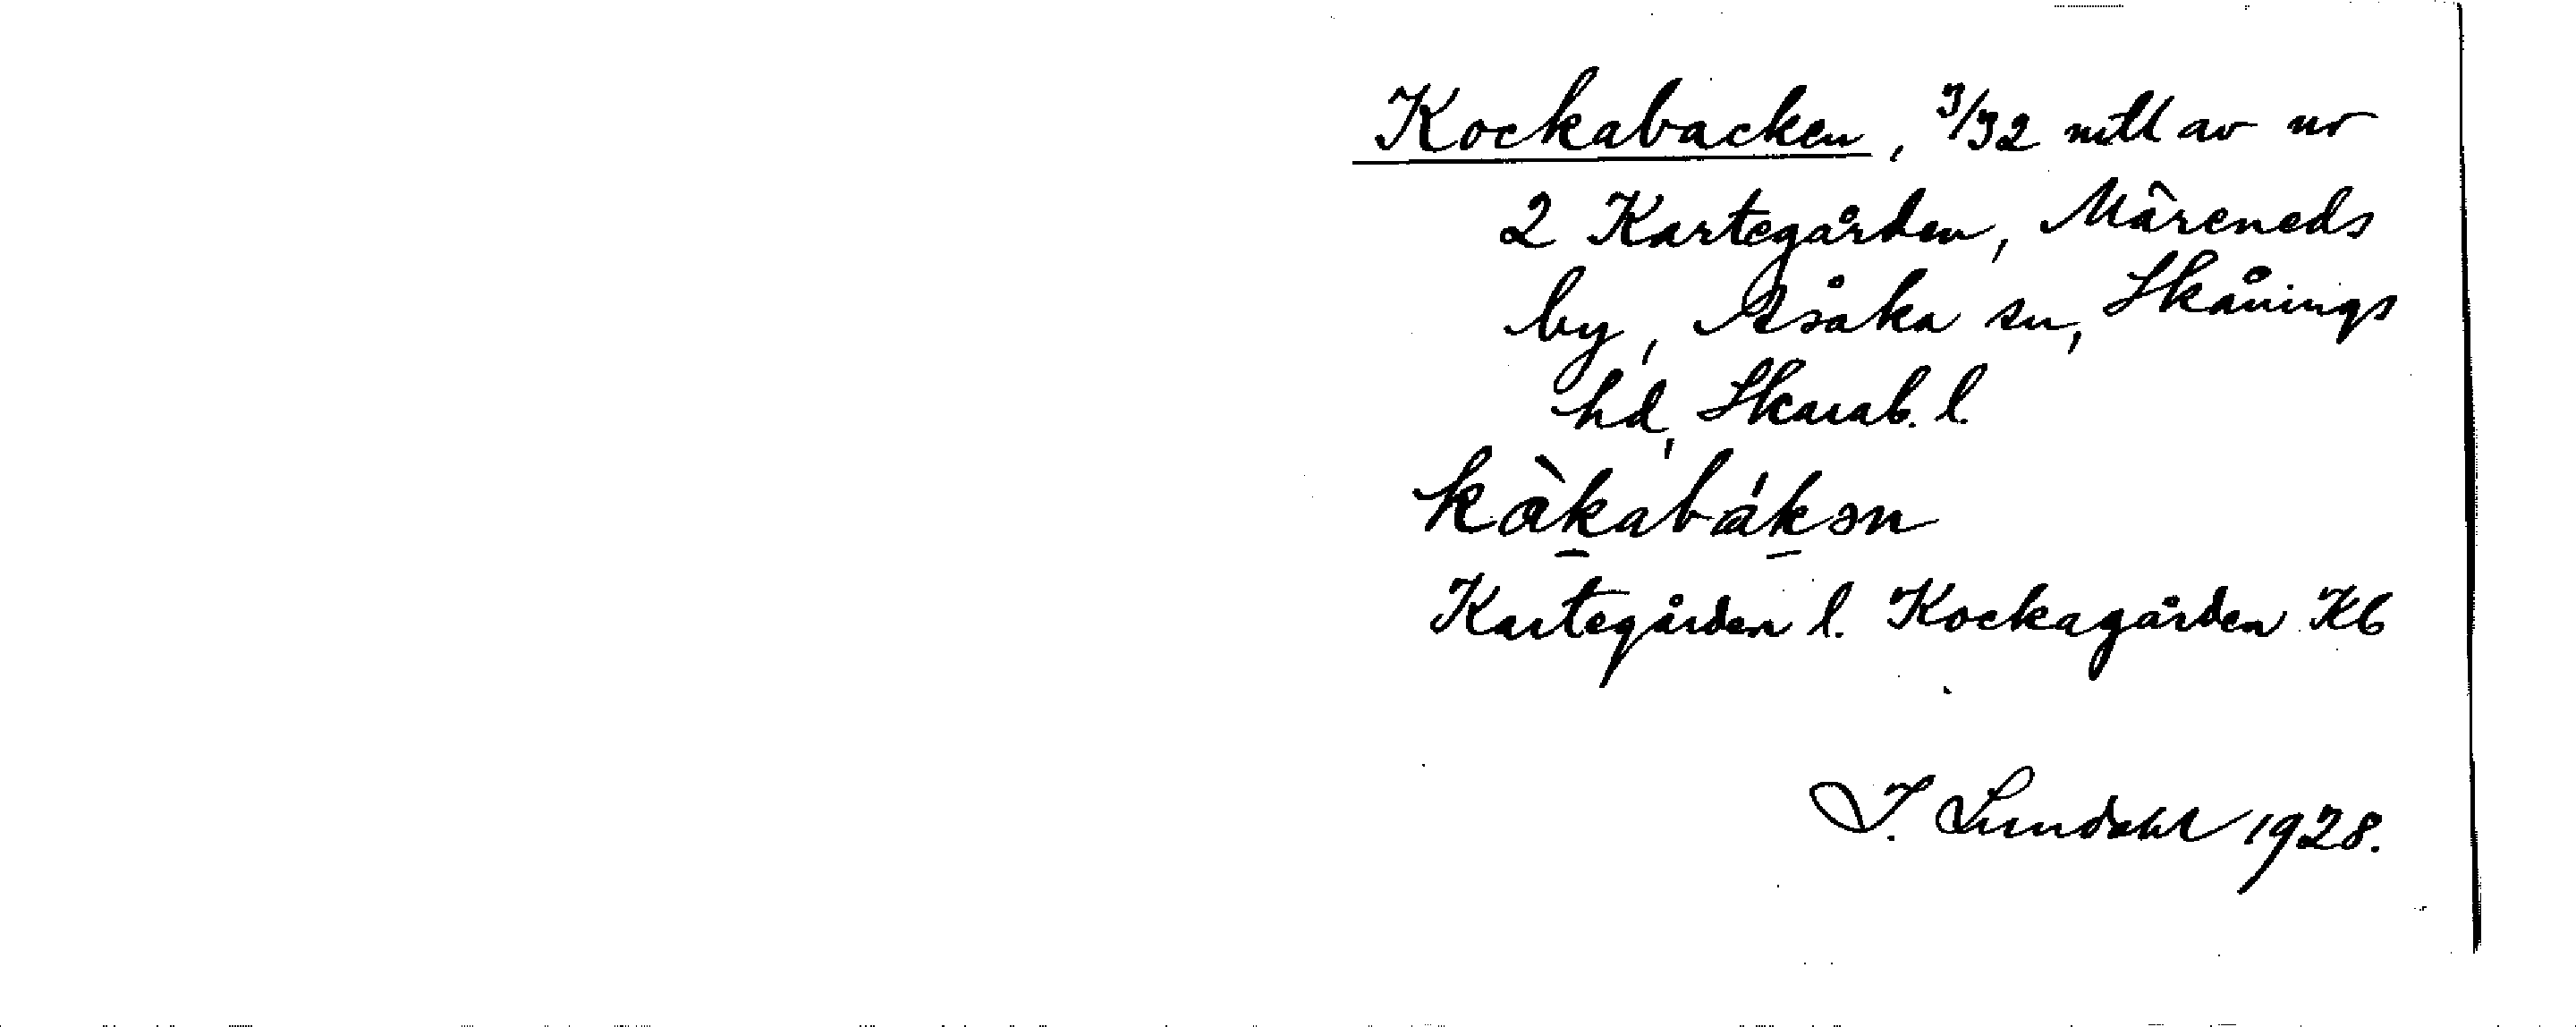 Kockabacken, 3/32 mtl av nr
2 Kartegården, Märeneds
by, Åsaka sn, Skånings
hd, Skarab. l.
kɑ̀kabákən
Kartegården l. Kockagården Kb
I. Lundahl 1928.